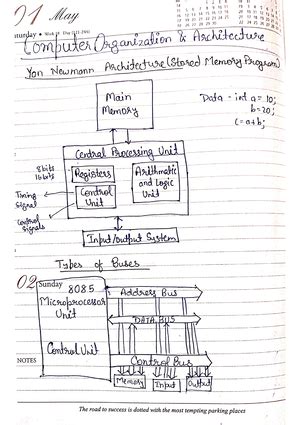 01 May
Saturday • Week 18
Computer Organization & Architecture
Von Newmann Architecture (Stored Memory Program)
Main
Memory
Data - int a = 10;
b = 20;
c = a+b;
Central Processing Unit
8bits
16bits
Registers
Control
Unit
Arithmatic
and Logic
Unit
Timing
Signal
Control
Signals
Input/Output System
Types of Buses
02 Sunday
8085
Microprocessor
Unit
Control Unit
Address Bus
DATA BUS
Control Bus
NOTES
Memory
Input
Output
The road to success is dotted with the most tempting parking places